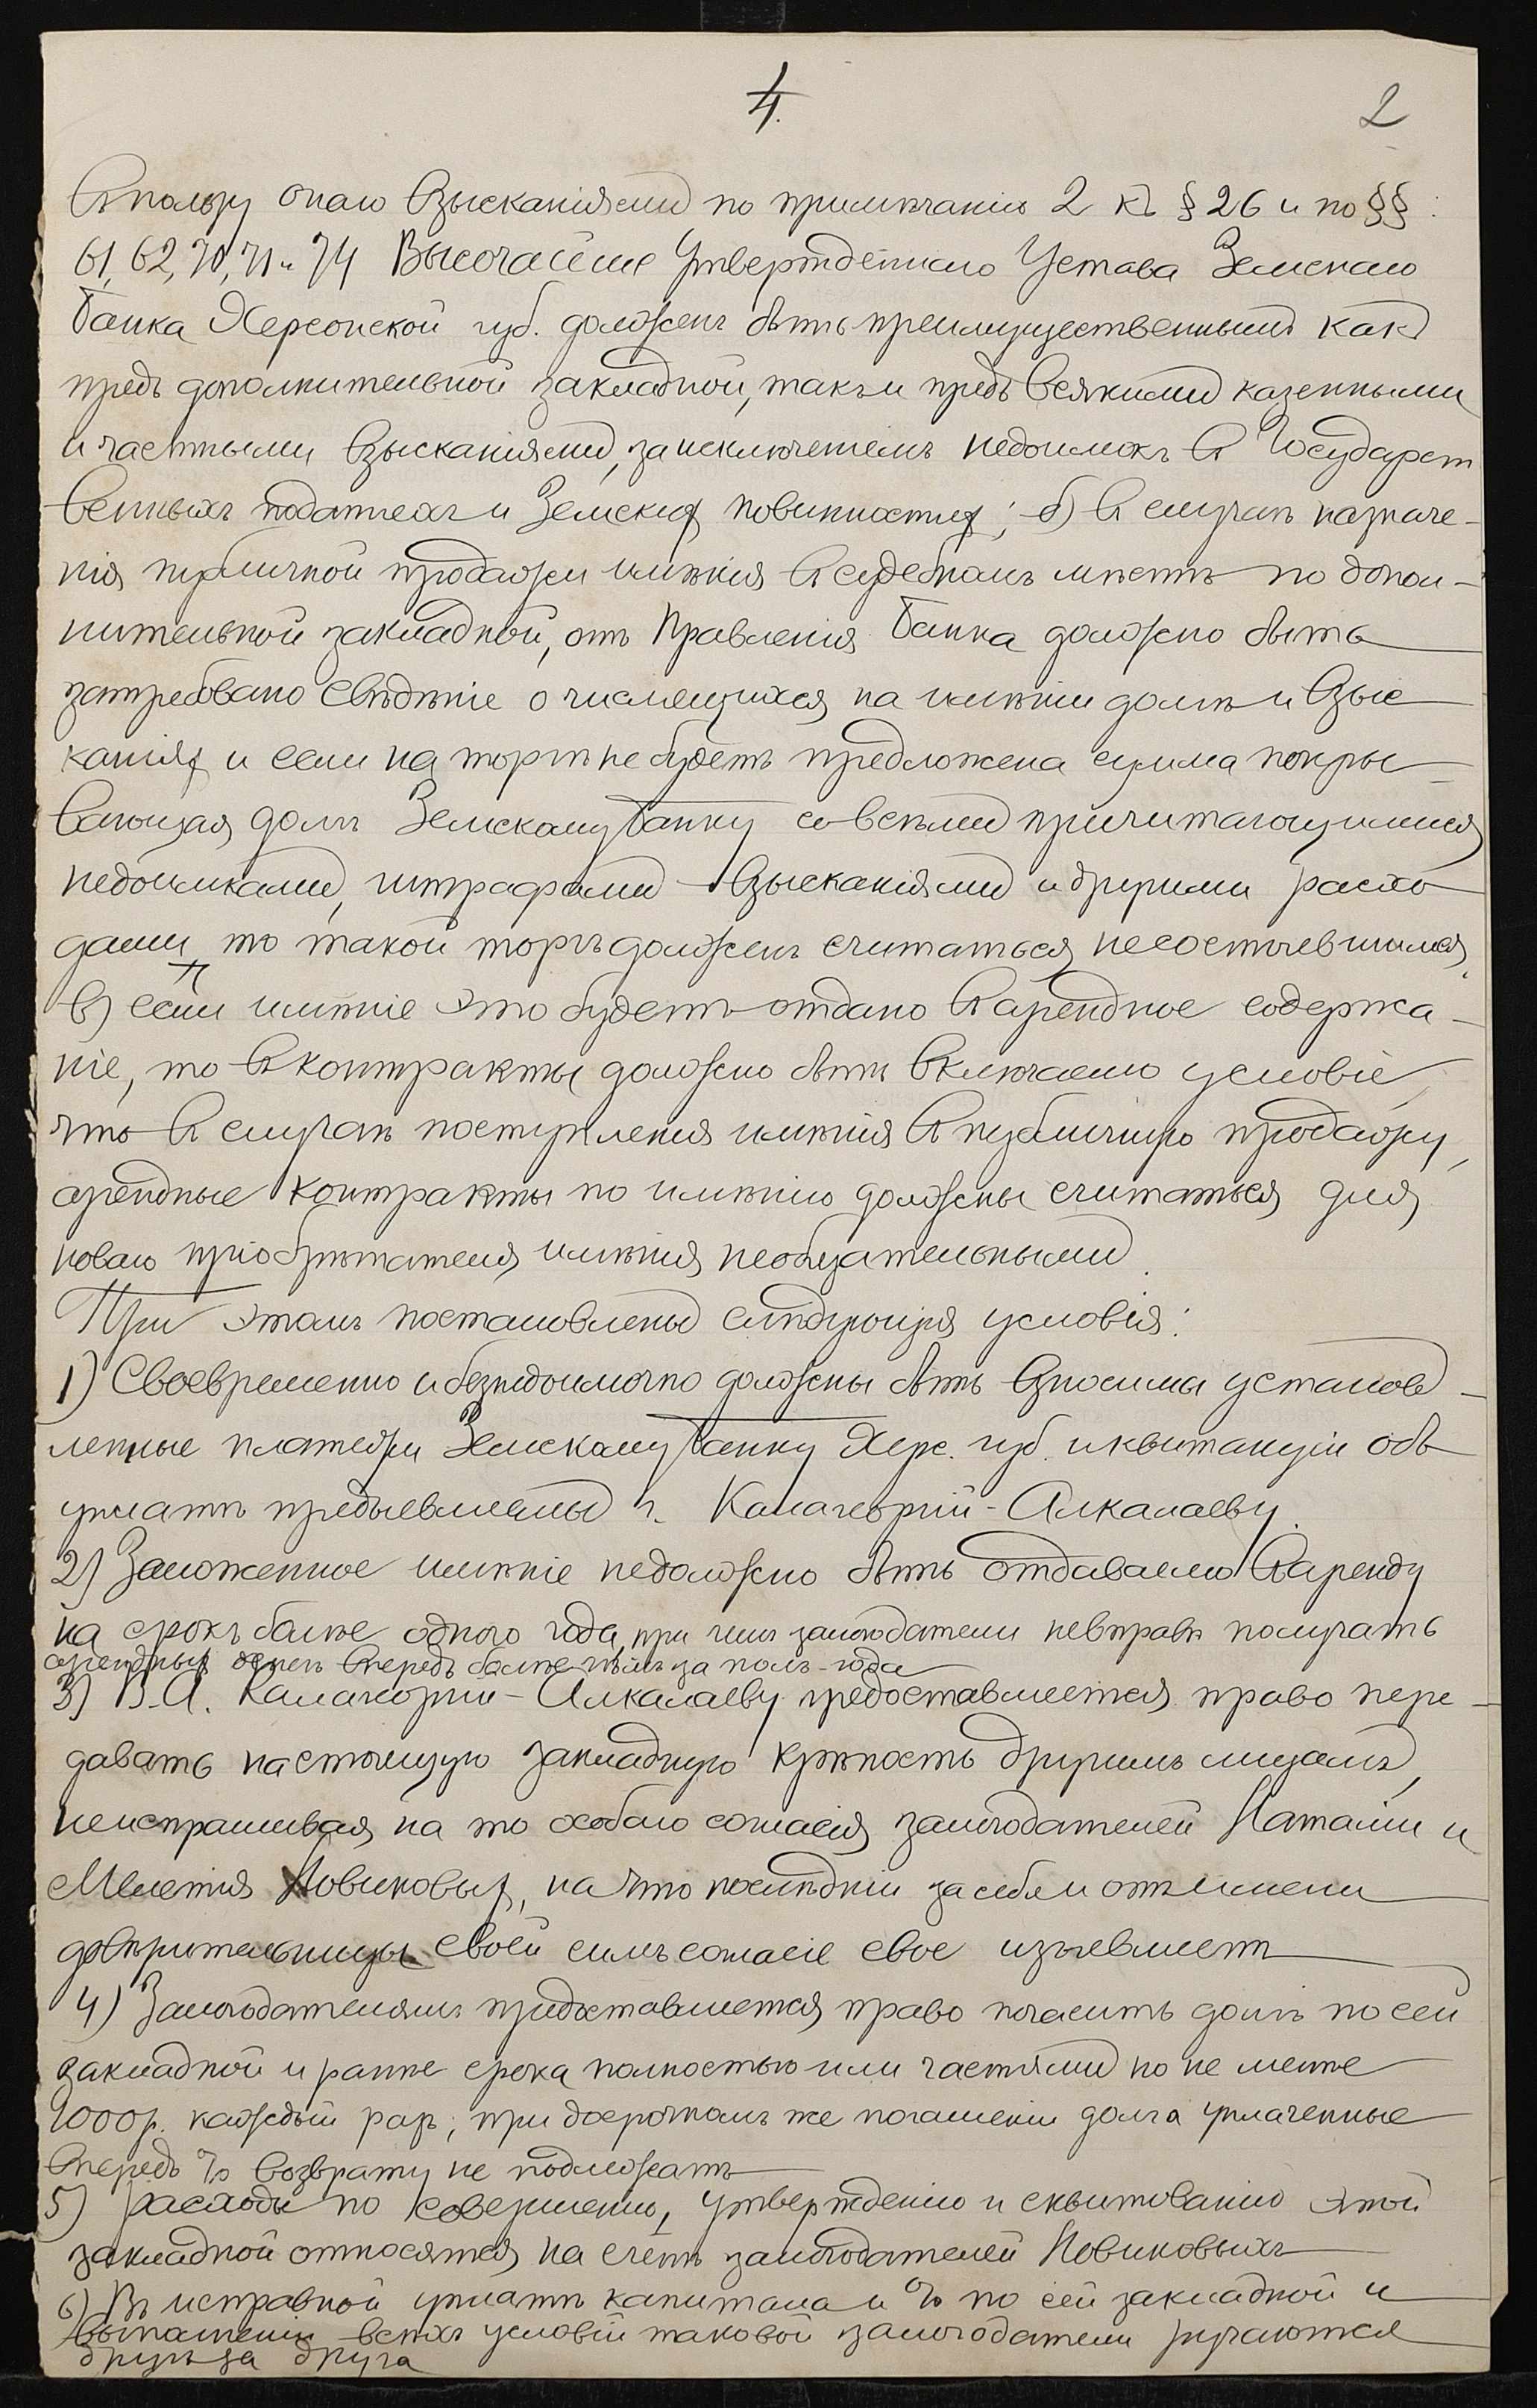 4.
2
въ пользу онаго взысканіями по примѣчанію 2 къ § 26 и по §§:
61, 62, 70, 71 и 74 Высочайше Утвержденнаго Устава Земскаго
Банка Херсонской губ. долженъ быть преимущественнымъ какъ
предъ дополнительной закладной, такъ и предъ всякими казенными
и частными взысканіями, за исключеніемъ недоимокъ въ Государст
венныхъ податяхъ и Земскихъ повинностяхъ; б) въ случаѣ назначе-
нія публичной продажи имѣнія въ судебномъ мѣстѣ по допол-
нительной закладной, отъ Правленія Банка должно быть
затребовано свѣдѣніе о числящихся на имѣніи долгѣ и взыс
каніяхъ и если на торгѣ не будетъ предложена сумма покры-
вающая долгъ Земскому Банку со всѣми причитающимися
недоимками, штрафами взысканіями и другими расхо
дами, то такой торгъ долженъ считаться несостоявшимся.
в) если имѣніе это будетъ отдано въ арендное содержа-
ніе, то въ контракты должно быть включаемо условіе,
что въ случаѣ поступленія имѣнія въ публичную продажу,
арендные контракты по имѣнію должны считаться для
новаго пріобрѣтателя имѣнія необязательными.
При этомъ постановлены слѣдующія условія:
1) Своевременно и безнедоимочно должны быть вносимы установ-
ленные платежи Земскому Банку Херс. губ. и квитанціи объ
уплатѣ предъявляемы г. Калагеоргій-Алкалаеву.
2) Заложенное имѣніе не должно быть отдаваемо въ аренду
на срокъ болѣе одного года, при чемъ залогодатели невправѣ получать
арендныхъ денегъ впередъ болѣе чѣмъ за полъ-года
3) В. А. Калагеоргій-Алкалаеву предоставляется право пере-
давать настоящую закладную крѣпость другимъ лицамъ,
неиспрашивая на то особаго согласія залогодателей Наталіи и
Мелетія Новиковыхъ, на что послѣдній за себя и отъ имени
довѣрительницы своей симъ согласіе свое изъявляетъ
4) Залогодателямъ предоставляется право погасить долгъ по сей
закладной и ранѣе срока полностью или частями но не менѣе
1000 р. каждый разъ; при досрочномъ же погашеніи долга уплаченные
впередъ % возврату не подлежатъ
5) расходы по совершенію, утвержденію и сквитованію этой
закладной относятся на счетъ залогодателей Новиковыхъ
6) Въ исправной уплатѣ капитала и % по сей закладной и
выполненіи всѣхъ условій таковой залогодатели ручаются
другъ за друга